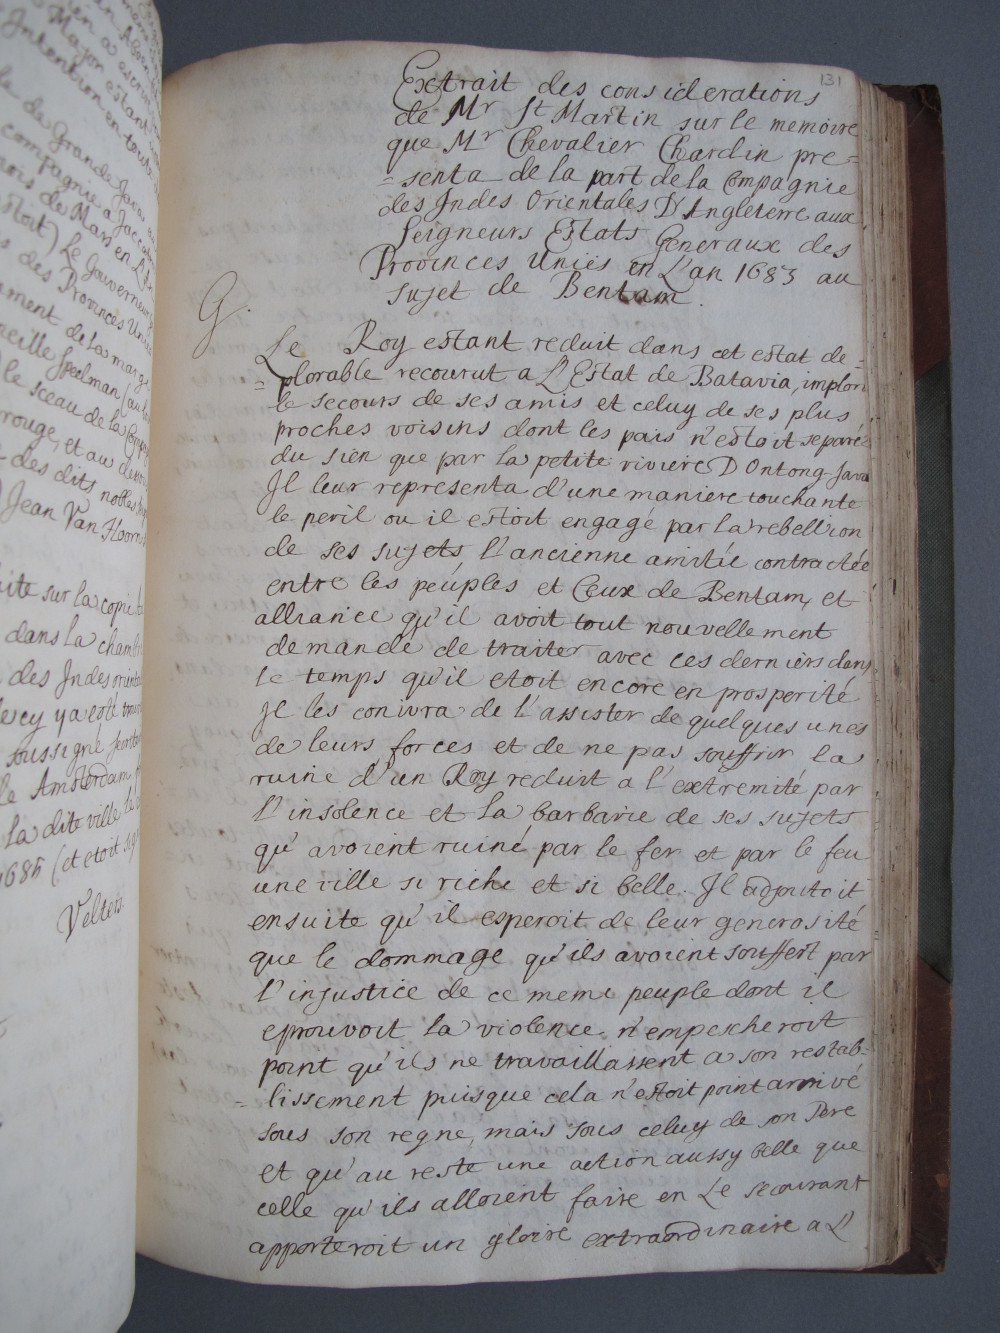 en a escrit
Major estant
Intention en toute
le de Grande Java
compagnie a Jaccatra
mois de Mars en L'An
estoit) Le Gouverneur
des Provinces Unies
ment de la marge
neille Speelman (au
le sceau de la Comp
rouge, et au dess
des dits nobles
Jean Van Hoorn
ite sur la copie
dans la chambre
des Jndes orient
ercy ya esté trou
soussigné secret
le Amsterdam
la dite ville le
1685 (et etoit sig
Velters.
131
Extrait des considerations
de Mr St Martin sur le memoire
que Mr Chevalier Chardin pre=
=senta de la part de la Compagnie
des Jndes Orientales D'Angleterre aux
Seigneurs Estats Generaux des
Provinces Unies en L'an 1683 au
sujet de Bentam.
G.
Le Roy estant reduit dans cet estat de=
=plorable recourut a L'Estat de Batavia, implora
le secours de ses amis et celuy de ses plus
proches voisins dont les pais n'estoit separé
du sien que par la petite riviere D Ontong-Java
Jl leur representa d'une maniere touchante
le peril ou il estoit engagé par la rebellion
de ses sujets l'ancienne amitié contractée
entre les peuples et Ceux de Bentam, et
alliance qu'il avoit tout nouvellement
demandé de traiter avec ces derniers dans
le temps qu'il etoit encore en prosperité
Jl les conivra de l'assister de quelques unes
de leurs forces et de ne pas souffrir la
ruine d'un Roy reduit a l'extremité par
l'insolence et la barbarie de ses sujets
qu'avoient ruiné par le fer et par le feu
une ville si riche et si belle. Jl adjoutoit
ensuite qu'il esperoit de leur generosité
que le dommage qu'ils avoient souffert par
l'injustice de ce meme peuple dont il
eprouvoit la violence n'empescheroit
point qu'ils ne travaillassent a son restab=
=lissement puisque cela n'estoit point arrivé
sous son regne, mais sous celuy de son Pere
et qu'au reste une action aussy belle que
celle qu'ils alloient faire en Le secourant
apporteroit un gloire extraordinaire a L'